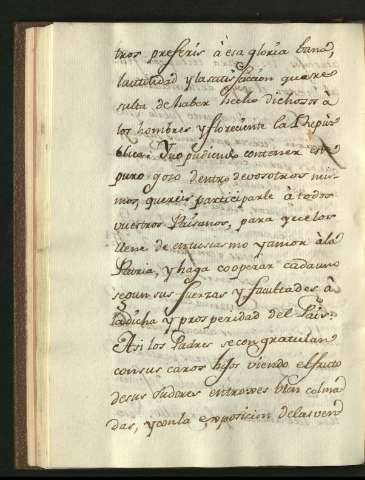 tros preferis à esa gloria bana,
la utilidad y la satisfaccion que re
sulta de haber hecho dichosos à
los hombres y floreciente la Repu
blica: Y no pudiendo contener este
puro gozo dentro de vosotros mis
mos, quereis participarle à todos
vuestros Paisanos, para que los
llene de entusiasmo y amor à la
Patria, y haga cooperar cada uno
segun sus fuerzas y facultades à
la dicha y prosperidad del Pais.
Asi los Padres se congratulan
con sus caros hijos viendo el fruto
de sus sudores en troxes bien colma
das, y con la exposicion de las ven